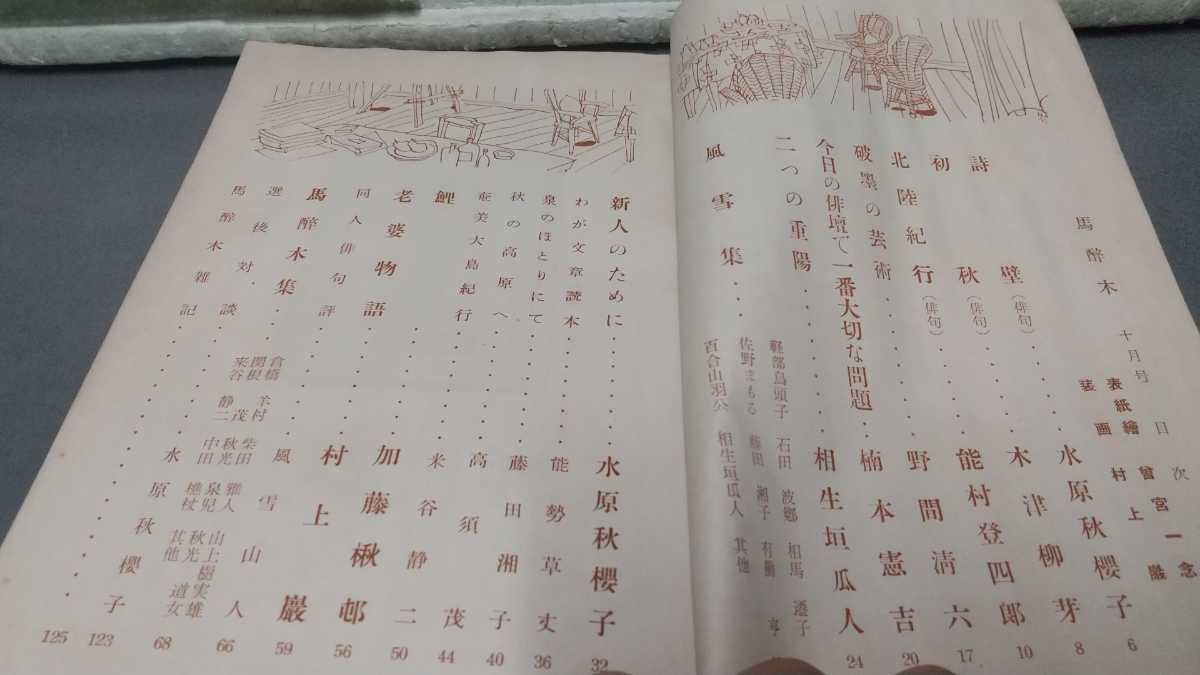 馬酔木 十月号 目次
表紙繪 曾宮一念
装画 村上巖
詩壁(俳句)・・・水原秋櫻子 6
初秋(俳句)・・・木津柳芽 8
北陸紀行(俳句)・・・能村登四郎 10
破墨の芸術・・・野間清六 17
今日の俳壇で一番大切な問題・・・楠本憲吉 20
二つの重陽・・・相生垣瓜人 24
風雪集・・・
軽部烏頭子 石田波郷 相馬遷子
佐野まもる 藤田湘子 有働亨
百合山羽公 相生垣瓜人 其他
新人のために・・・水原秋櫻子 32
わが文章読本・・・能勢草丈 36
泉のほとりにて・・・藤田湘子 40
秋の高原へ・・・高須茂 44
奄美大島紀行・・・米谷静二 50
鯉・・・加藤楸邨 56
老婆物語・・・村上巖 59
同人俳句評・・・風雪山人 66
馬酔木集・・・
倉橋羊村 柴田雅人 山上樹実雄
関根茂 秋光泉児 秋光道女
米谷静二 中田樵杖 其他 68
選後対談・・・水原秋櫻子 123
馬酔木雑記・・・125